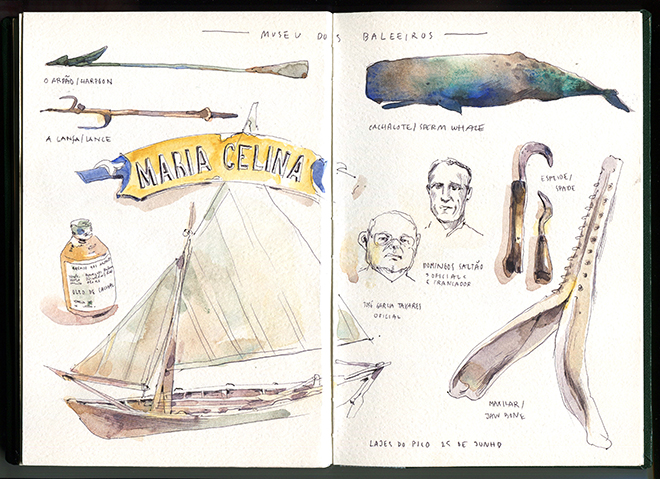 MUSEU DOS BALEEIROS
O ARPÃO/HARPOON
A LANÇA/LANCE
MARIA CELINA
CACHALOTE/SPERM WHALE
ESPEIDE/
SPADE
DOMINGOS
OFICIAL
E TRANCADOR
JOSÉ GARCIA TAVARES
OFICIAL
MAXILAR/
JAW BONE
LAJES DO PICO 25 DE JUNHO